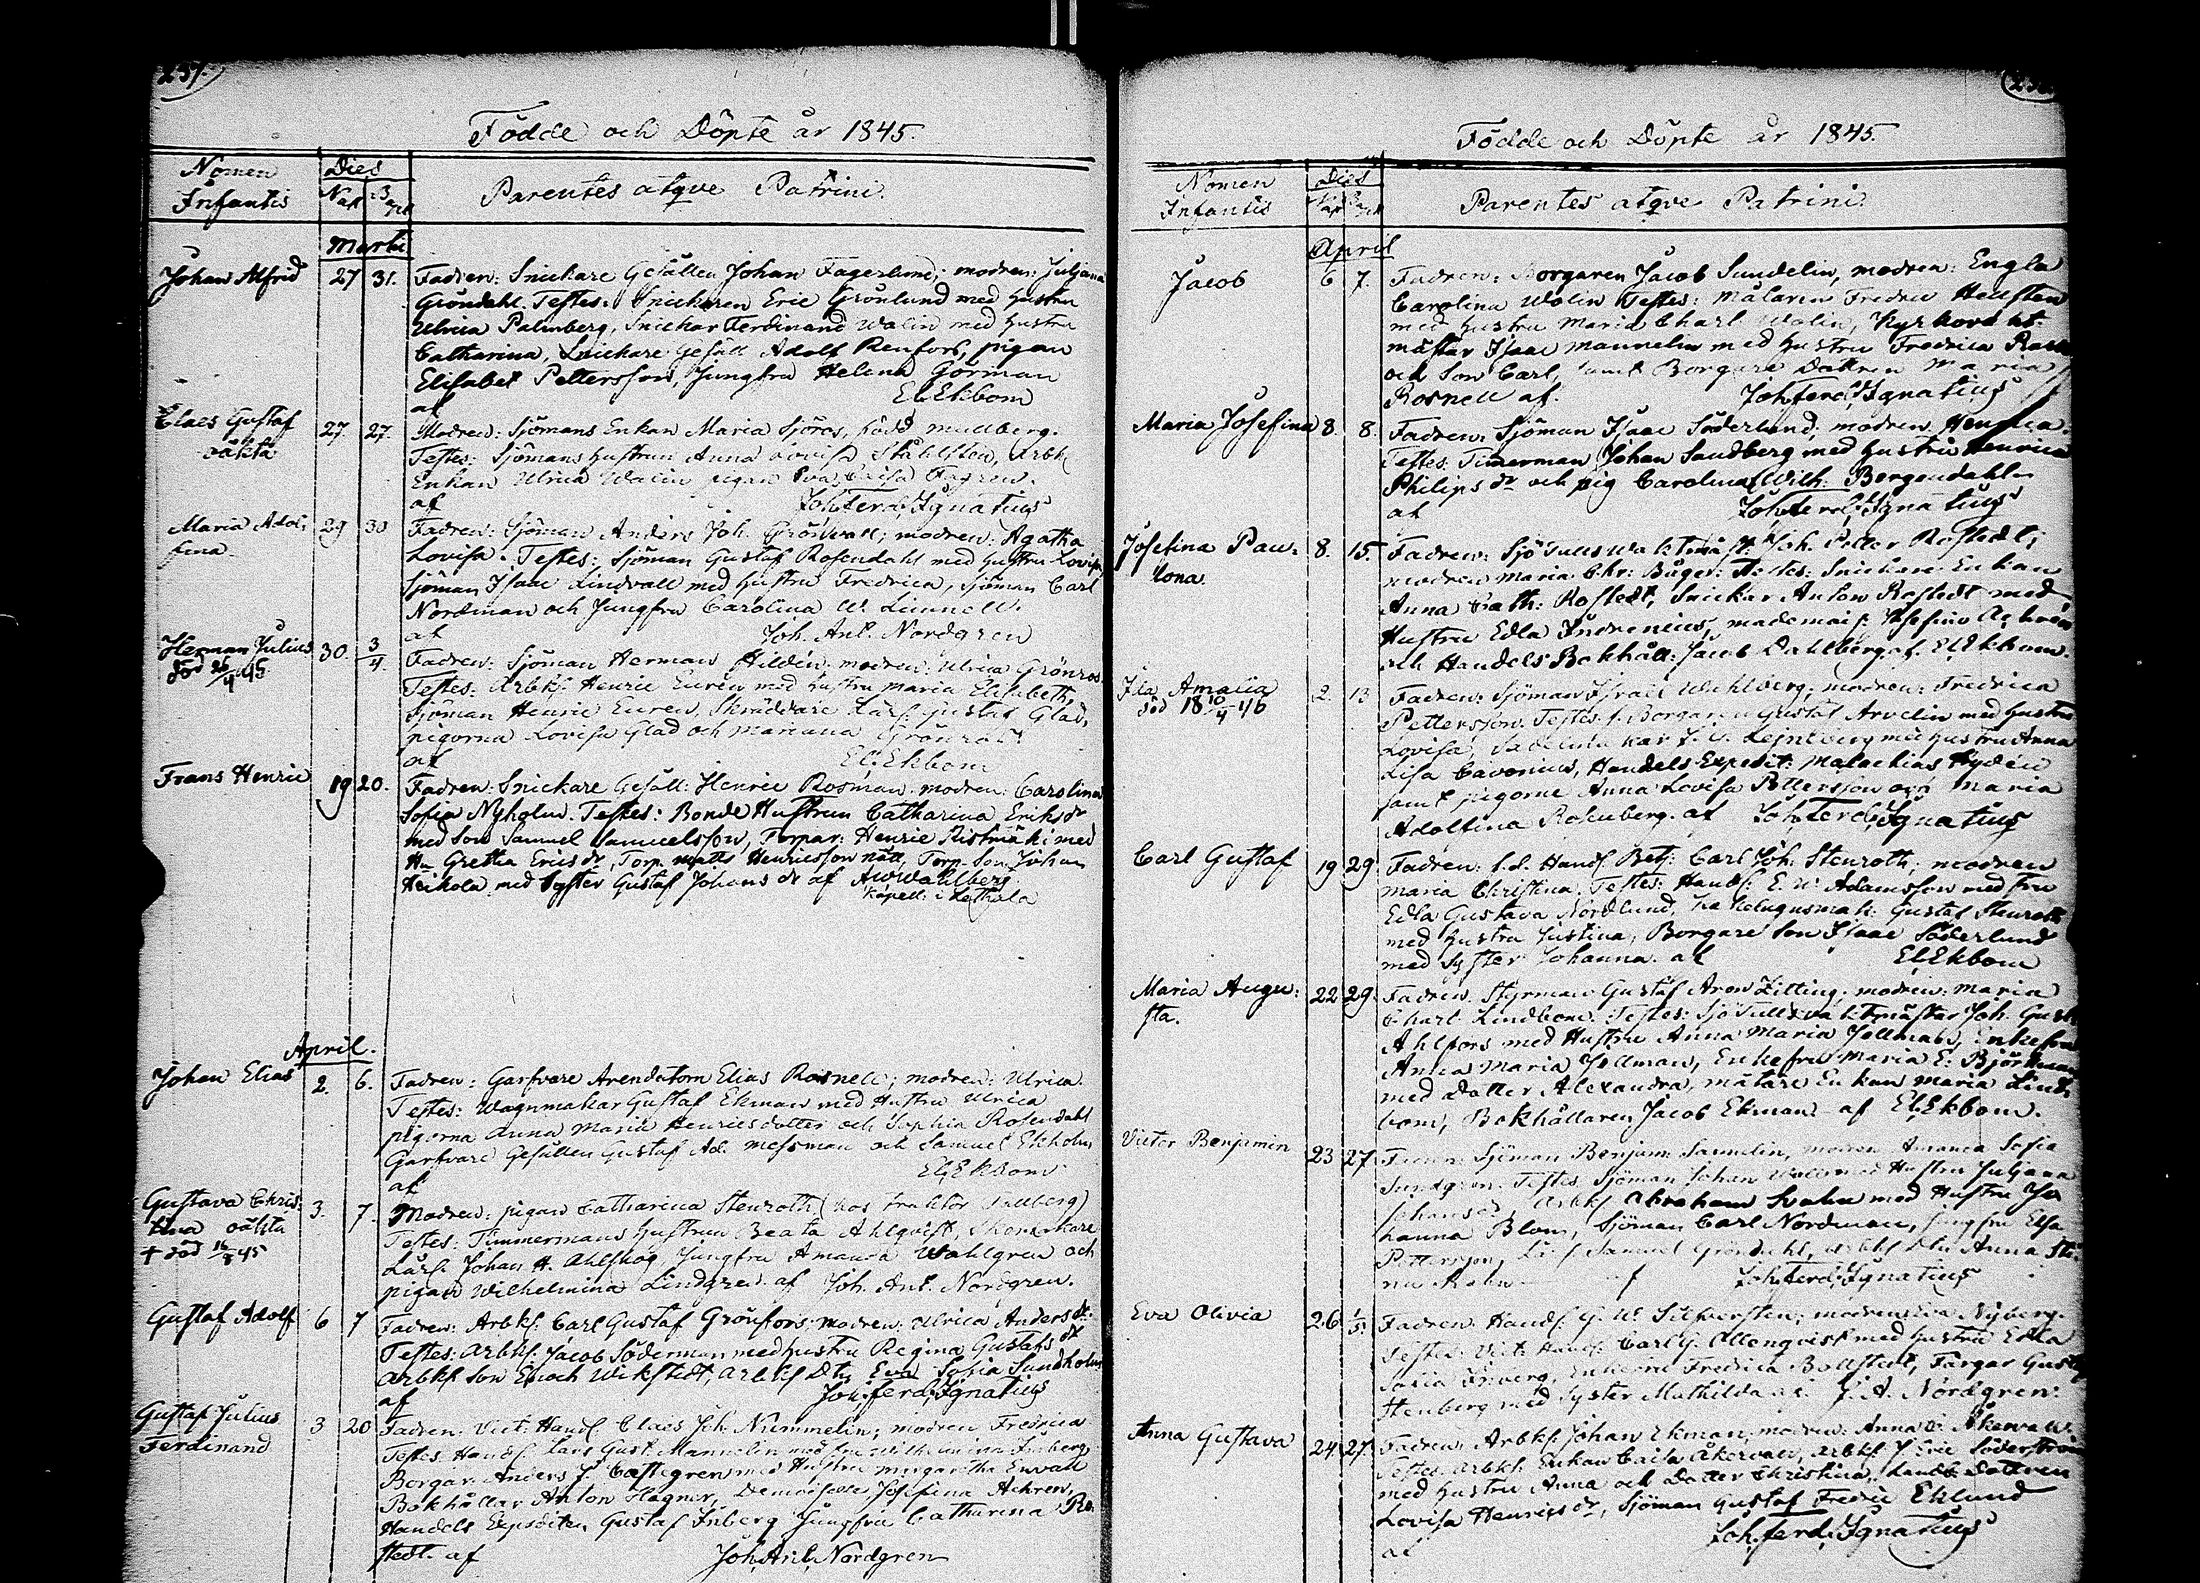 237.
Födde och Döpte år 1845.
Nomen Infantis
Dies
Nat Bapt
Parentes atqve Patrini.
Martii
Johan Alfred 27 31. Fadren: Snickare Gesällen Johan Fagerlund; modren: Juljana
Gröndahl. Testes: Snickaren Eric Grönlund med hustru
Ulrica Palmberg, Snickar Ferdinand Walin med hustru
Catharina, Snickare Gesäll Adolf Renfors, pigan
Elisabet Pettersson, Jungfru Helena Görman
af El. Ekbom
Claes Gustaf oäkta 27. 27. Modren: Sjömans Enkan Maria Sjöros, född Mullberg.
Testes: Sjömans hustrun Anna Lovisa Ståhlsten, Arbk:
Enkan Ulrica Walin pigan Eva Caisa Fagren.
af Joh. Ferd. Ignatius
Maria Adol: fina. 29 30 Fadren: Sjöman Anders Joh. Grönvall; modren: Agatha
Lovisa. Testes: Sjöman Gustaf Rosendahl med hustru Lovisa
Sjöman Isaac Lindvall med hustru Fredrica, Sjöman Carl
Nordman och Jungfru Carolina W. Linnell.
af Joh. Ant. Nordgren
Herman Julius död 26/4 45 30. 3/4. Fadren: Sjöman Herman Hildén. modren: Ulrica Grönros.
Testes: Arbks. Henric Euren med hustru Maria Elisabeth,
Sjöman Henric Euren, Skräddare Lärl: Gustaf Glad,
pigorna Lovisa Glad och Mariana
af El. Ekbom
Frans Henric 19 20. Fadren: Snickare Gesäll: Henric Rosman. modren: Carolina
Sofia Nyholm. Testes: Bonde Hustrun Catharina Eriksdr
med son Samuel Samuelsson, Torpar: Henric Ristimäki med
Hu Gretta Ericsdr, Torp. Matts Henricsson Nätt, Torp. Son Johan
Heikola med Syster Gustaf Johansdr af AWWahlberg
Kapell: i Lethala
April.
Johan Elias 2. 6. Fadren: Garfvare Arendatorn Elias Rosnell; modren: Ulrica.
Testes: Wagnmakar Gustaf Ekman med Hustru Ulrica
pigorna Anna Maria Henricsdotter och Sophia Rosendahl
Garfvare Gesällen Gustaf Ad. Messman och Samuel Ekholm
af El. Ekbom
Gustava Chris: tina oäkta † död 16/8 45 3. 7. Modren: pigan Catharina Stenroth (hos traktör
Testes: Timmermans hustrun Beata Ahlqvist, Skomakare
Lärl. Johan H. Ahlskog Jungfru Amanda Wahlgren och
pigan Wilhelmina Lindgren. af Joh. Ant. Nordgren.
Gustaf Adolf 6 7 Fadren: Arbks. Carl Gustaf Grönfors; modren: Ulrica Andersdr.
Testes: Arbks. Jacob Söderman med hustru Regina Gustafsdr
Arbks son Enoch Wikstedt, Arbks Dtr Eva Sofia Sundholm
af Joh. Ferd. Ignatius
Gustaf Julius Ferdinand 3 20 Fadren: Vict: Handl Claes Joh. Nummelin; modren Fredrica
Testes Handl. Lars Gust. Mannelin med fru Wilhelmina Inberg
Borgar: Anders J. Castegren med Hustru Margaretha Envall
Bokhållar Anton Hagner, Demoiselle Josefina Achren,
Handels Expediten Gustaf Inberg Jungfru Catharina Ro:
stedt. af Joh. Ant. Nordgren
Födde och Döpte år 1845.
Nomen Infantis
Dies
Nat Bapt
Parentes atqve Patrini.
April
Jacob 6 7. Fadren: Borgaren Jacob Sundelin, modren: Engla
Carolina Walin Testes: Målaren Fredric Hellsten
med hustru Maria Charl. Walin, Kyrkovakt:
mästar Isaac Mannelin med hustru Fredrica
och Son Carl, samt Borgare Dottren Maria
Rosnell af. Joh. Ferd. Ignatius
Maria Josefina 8. 8. Fadren: Sjöman Isaac Söderlund; modren. Henrica.
Testes: Timerman Johan Sandberg med hustru Henrica
Philipsdr och pig Carolina Wilh. Bergendahl
af Joh. Ferd. Ignatius
Josefina Pau: lona 8. 15. Fadren: Sjö Tulls waktmäst: Joh. Petter Rostedt;
modren Maria Chr: Büger: Testes: Snickare Enkan
Anna Cath: Rostedt, Snickar Anton Rostedt med
Hustru Edla Indrenius, mademois: Josefina Achren
och Handels Bokhåll: Jacob Dahlberg. af. El. Ekbom.
Ida Amalia död 18 10/4 46 2. 13 Fadren: Sjöman Israel Wehlberg; modren: Fredrica
Pettersson. Testes: f. Borgaren Gustaf Arvelin med hustru
Lovisa, Sadelmakar J. U. Lejnberg med hustru Anna
Lisa Cavonius, Handels Expedit: Malachias Hydén
samt pigorne Anna Lovisa Pettersson och Maria
Adolfina Rosenberg. af Joh. Ferd. Ignatius
Carl Gustaf 19 29. Fadren: f.d. Handl. Betj: Carl Joh. Stenroth; modren
Maria Christina. Testes: Handl: E. W. Adamsson med fru
Edla Gustava Nordlund, Kakelugnsmak: Gustaf Stenroth
med hustru Justina, Borgare Son Isaac Söderlund
med Syster Johanna. af El. Ekbom
Maria Augu: sta. 22 29. Fadren. Styrman Gustaf Aron Zitting; modren: Maria
Charl. Lindbom. Testes: Sjö Tulls vaktmästar Joh. Gust.
Ahlfors med Hustru Anna Maria Jollman, Enkefru
Anna Maria Jollman, Enkefru Maria E. Björkman
med Dotter Alexandra, Mätare Enkan Maria Lind:
bom, Bokhållaren Jacob Ekman af El. Ekbom.
Victor Benjamin 23 27 Fadren: Sjöman Benjam: Sannelin, modren Amanda Sofia
Sundgren. Testes Sjöman Johan Wall med Hustru Juljana
Johansdr, Arbks. Abraham Svahn med Hustru Jo
hanna Blom, Sjöman Carl Nordman, Jungfru Elsa
Pettersson, Lärl Samuel Gröndahl, Arbks Dtr Anna
af Joh. Ferd. Ignatius
Eva Olivia 26 1/5. Fadren. Handl. G. W. Silfversten; modren Eva Nyberg.
Testes: Vict: Handl: Carl G. Ollonqvist med hustru Edla
Sofia Inberg, Enkefru Fredrica Bollstedt, Färgar Gustaf
Stenberg med Syster Mathilda af. J. A. Nordgren.
Anna Gustava 24. 27. Fadren: Arbks Johan Ekman, modren: Anna C. Åkerwall.
Testes: Arbks. Enkan Caisa Åkervall, Arbks. J. Eric Söderström
med hustru Anna och Dotter Christina, Landb. Dottren
Lovisa Henricsdr, Sjöman Gustaf Fredric Eklund
af Joh. Ferd. Ignatius